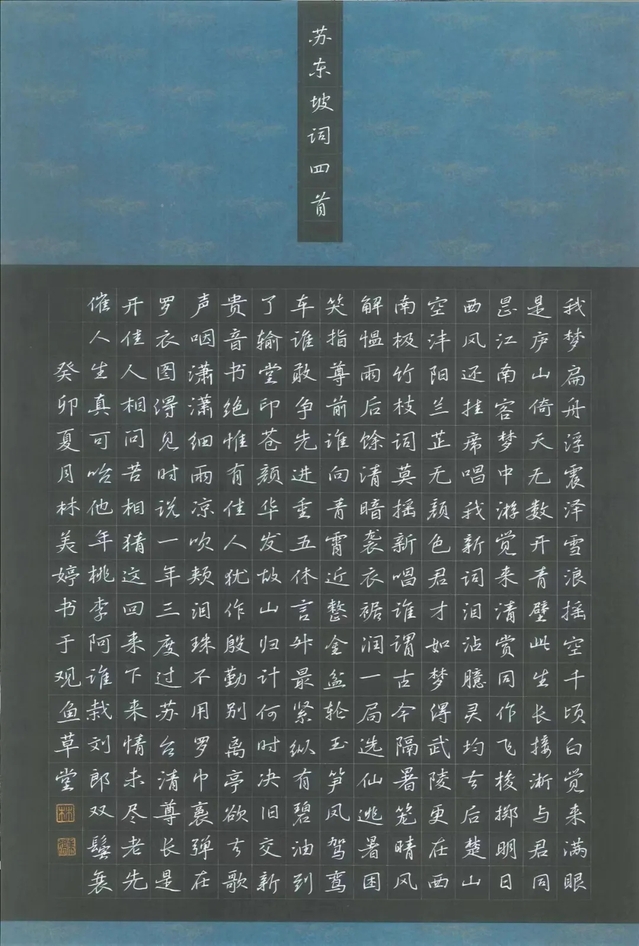 苏东坡词四首
我梦扁舟浮震泽雪浪摇空千顷白觉来满眼
是庐山倚天无数开青壁此生长接淅与君同
是江南客梦中游觉来清赏同作飞梭掷明日
西风还挂席唱我新词泪沾臆灵均去后楚山
空沣阳兰芷无颜色君才如梦得武陵更在西
南极竹枝词莫摇新唱谁谓古今隔署笼晴风
解愠雨后馀清暗袭衣裾润一局选仙逃暑困
笑指尊前谁向青霄近整金盆轮玉笋凤驾鸾
车谁敢争先进重五休言升最紧纵有碧油到
了输堂印苍颜华发故山归计何时决旧交新
贵音书绝惟有佳人犹作殷勤别离亭欲去歌
声咽潇潇细雨凉吹颊泪珠不用罗巾裛弹在
罗衣图得见时说一年三度过苏台清尊长是
开佳人相问苦相猜这回来下来情未尽老先
催人生真可咍他年桃李阿谁栽刘郎双鬓衰
癸卯夏月林美婷书于观鱼草堂